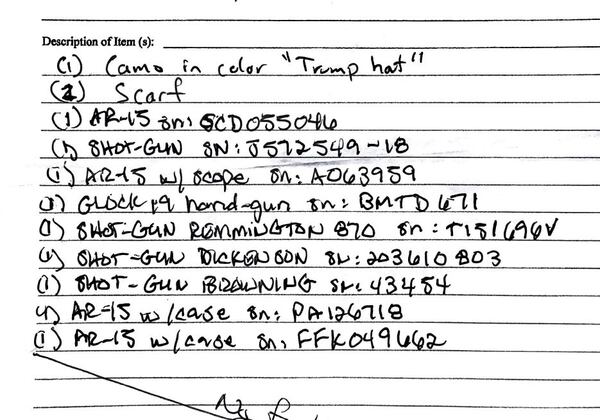 Description of Item (s):
(1) Camo in color "Trump hat"
(2) Scarf
(1) AR-15 sn: SCD055046
(1) SHOT-GUN SN: J572549-18
(1) AR-15 w/ scope sn: A063959
(1) GLOCK 19 hand-gun sn: BMTD 671
(1) SHOT-GUN REMMINGTON 870 sn: T151696V
(1) SHOT-GUN DICKENSON SN: 203610803
(1) SHOT-GUN BROWNING SN: 43454
(1) AR-15 w/case sn: PA126718
(1) AR-15 w/case sn: FFK049662